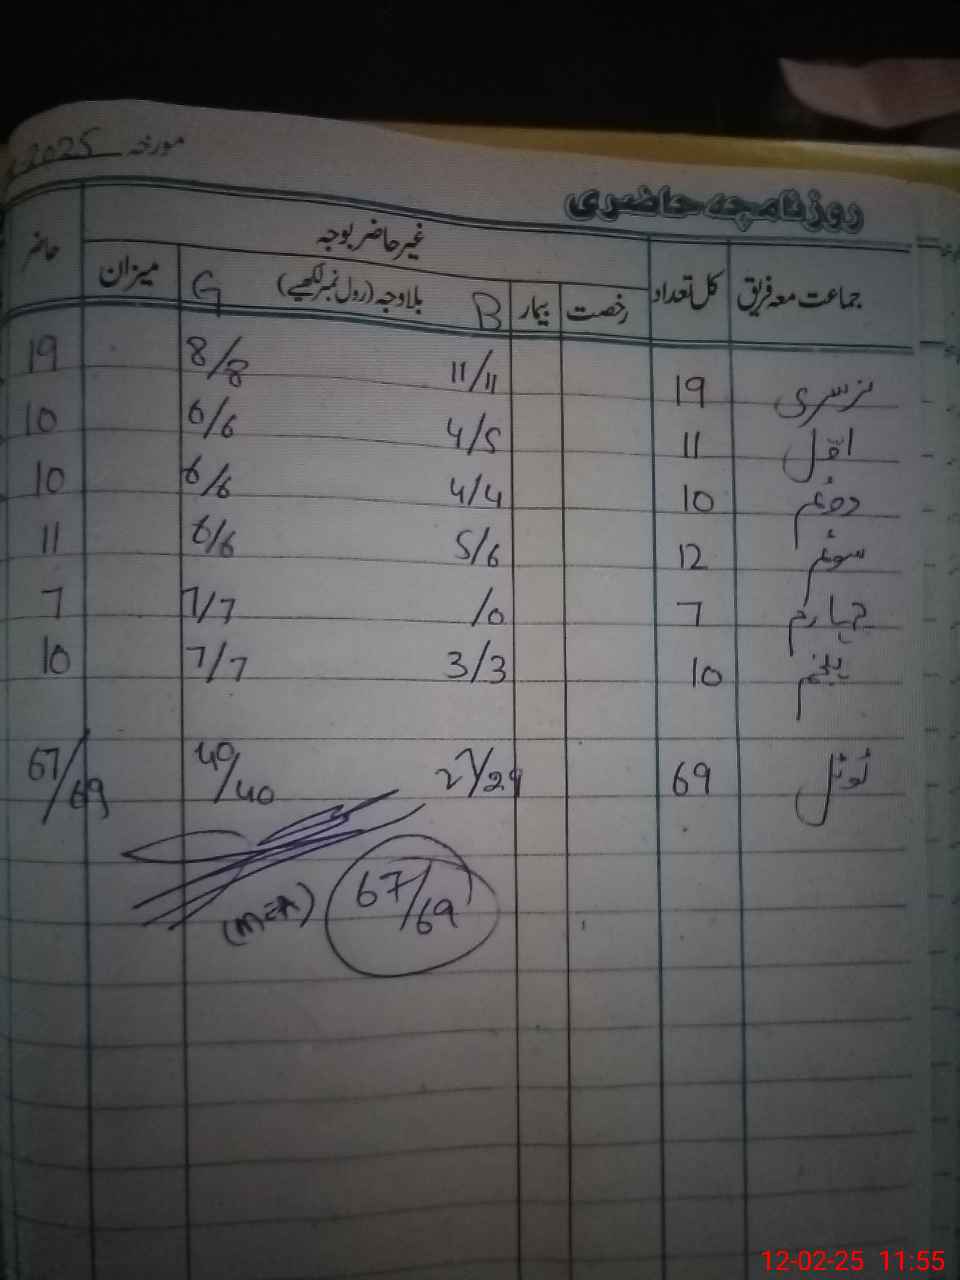 مورخہ 2025
روزنامچہ حاضری
جماعت معہ فریق کل تعداد غیر حاضر بوجہ حاضر
رخصت بیمار B بلاوجہ (رول نمبر لکھیے) G میزان
نرسری 19 11/11 8/8 19
اوّل 11 4/5 6/6 10
دوئم 10 4/4 6/6 10
سوئم 12 5/6 6/6 11
چہارم 7 /0 7/7 7
پنجم 10 3/3 7/7 10
ٹوٹل 69 27/29 40/40 67/69
67/69
12-02-25 11:55